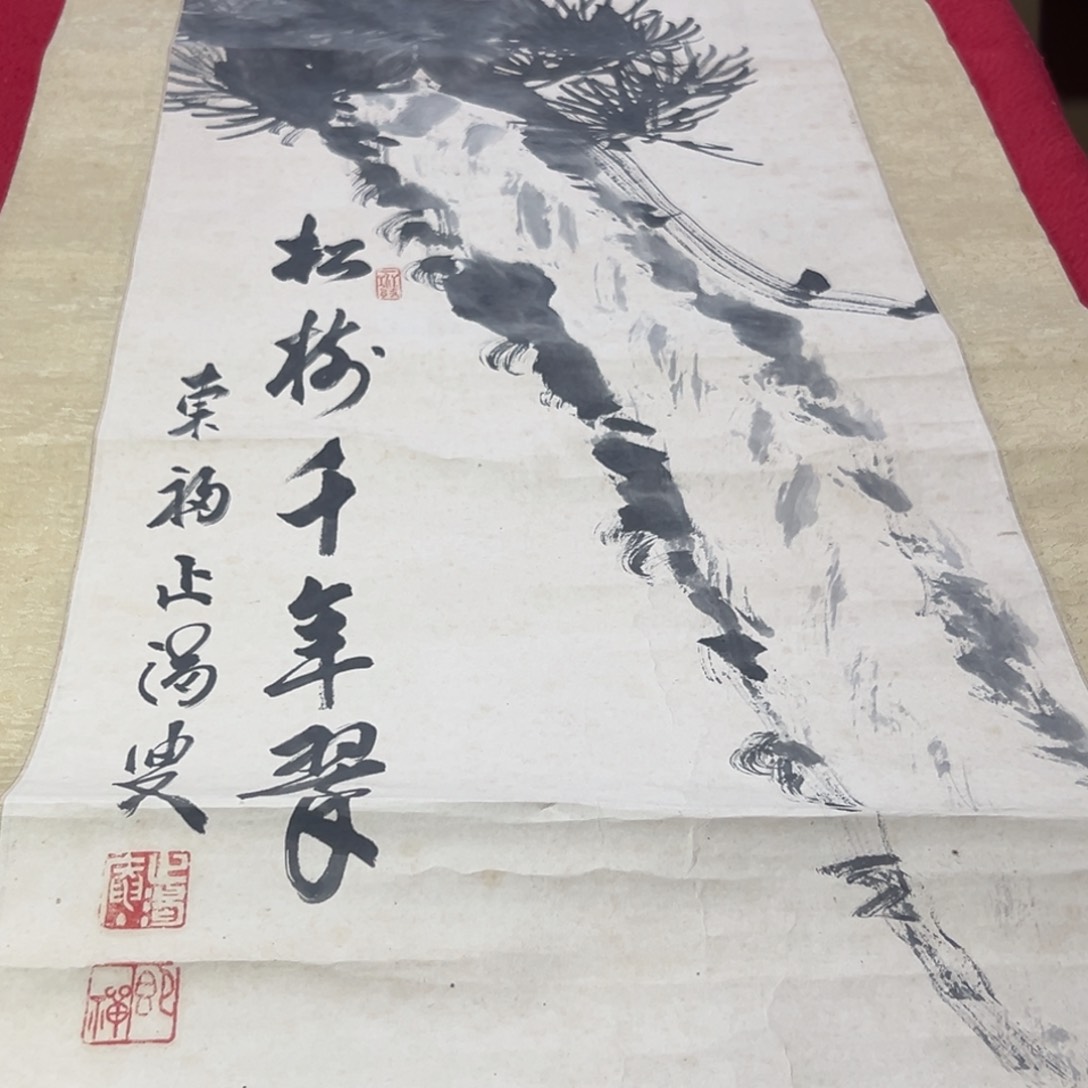 松樹千年翠
東福止渇叟
即禪